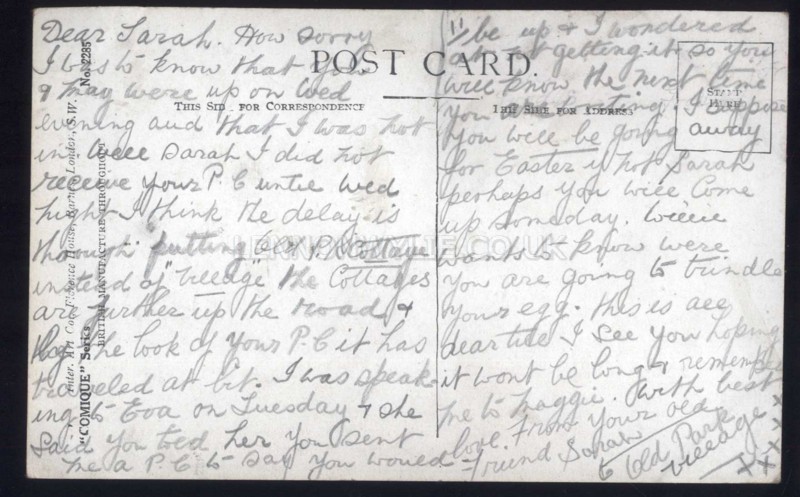 Dear Sarah. How sorry
I was to know that you
& May were up on Wed
evening and that I was not
in well Sarah I did not
receive your P.C until Wed
night I think the delay is
through putting Old P. Cottage
instead of "Village" the Cottages
are further up the road, &
by the look of your P.C it has
traveled a bit. I was speak-
ing to Eva on Tuesday & she
said you told her you sent
me a P.C to say you would
11/ be up & I wondered
at not getting it so you
will know the next time
you are writing. I suppose
you will be going away
for Easter if not Sarah
perhaps you will come
up someday. Willie
wants to know were
you are going to trindle
your egg. this is all
dear till I see you hoping
it wont be long & remember
me to Maggie. With best
love. From your old
friend Sarah
6 Old Park
Village
x x x x x
POST CARD.
THIS SIDE FOR CORRESPONDENCE
THIS SIDE FOR ADDRESS
STAMP
HERE
"COMIQUE" Series
No. 2285
Inter. Art Co., Florence House, Barnes, London, S.W.
BRITISH MANUFACTURE THROUGHOUT